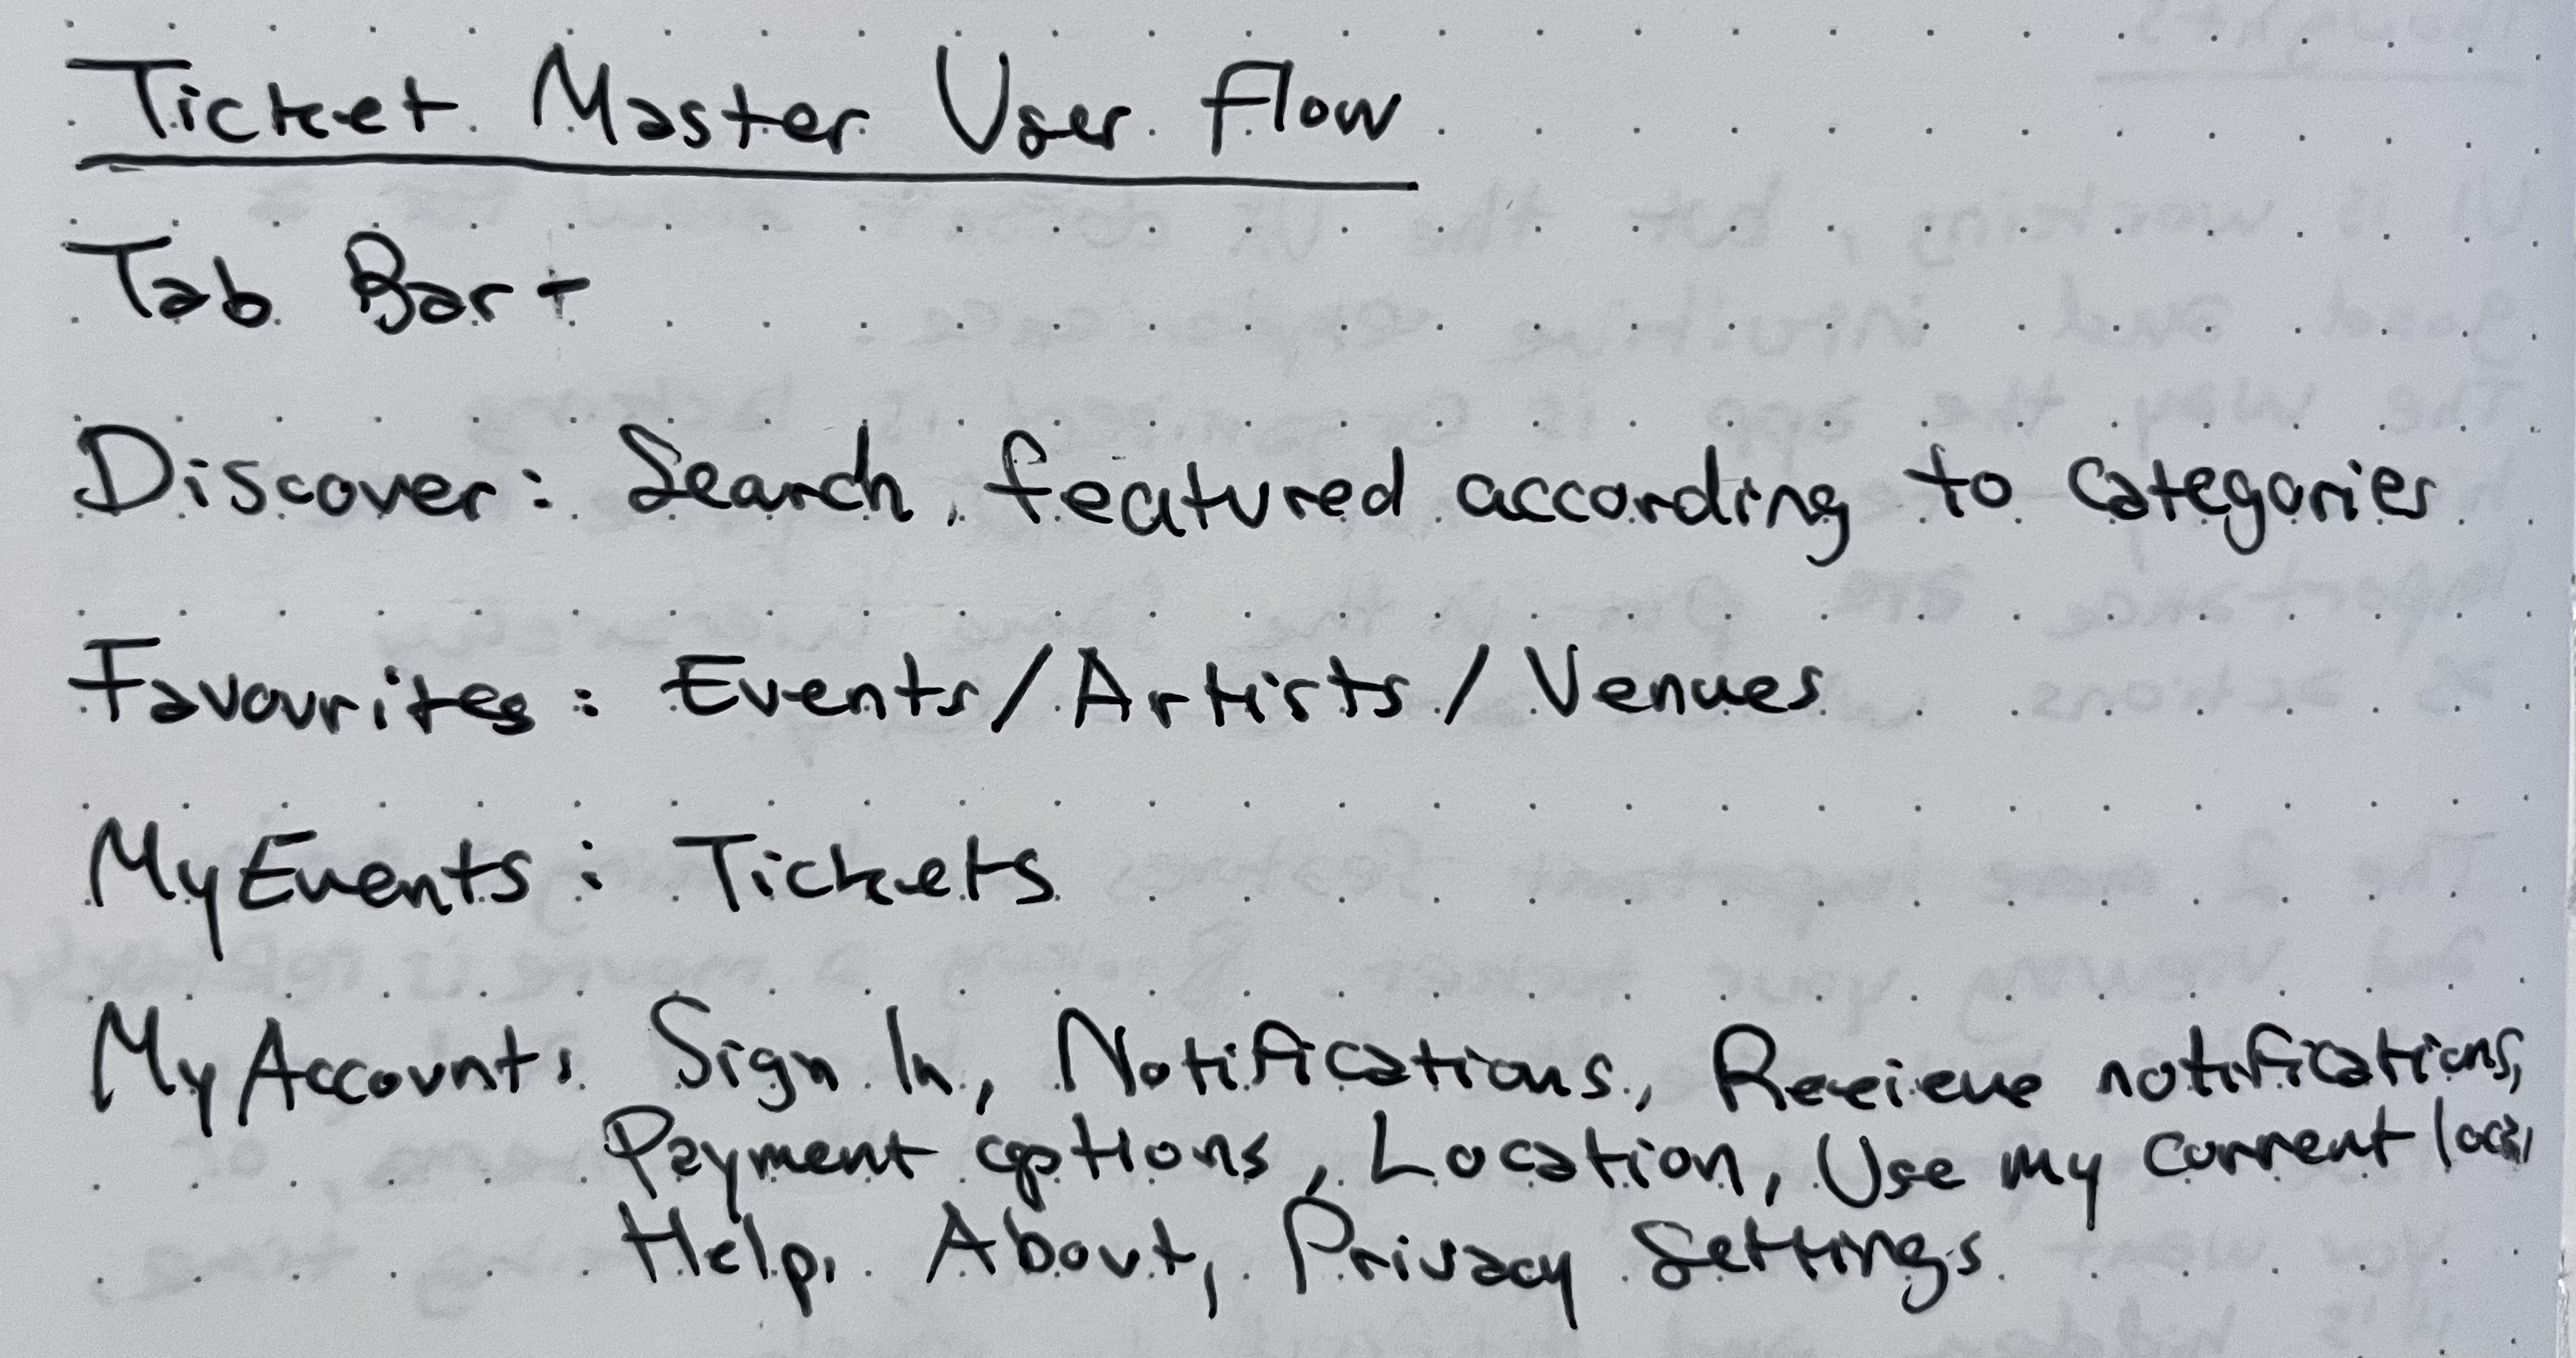 Ticket Master User Flow
Tab Bar
Discover: Search, featured according to categories
Favourites: Events/Artists/Venues
MyEvents: Tickets
MyAccount: Sign In, Notifications, Receieve notifications,
Payment options, Location, Use my current
Help, About, Privacy Settings